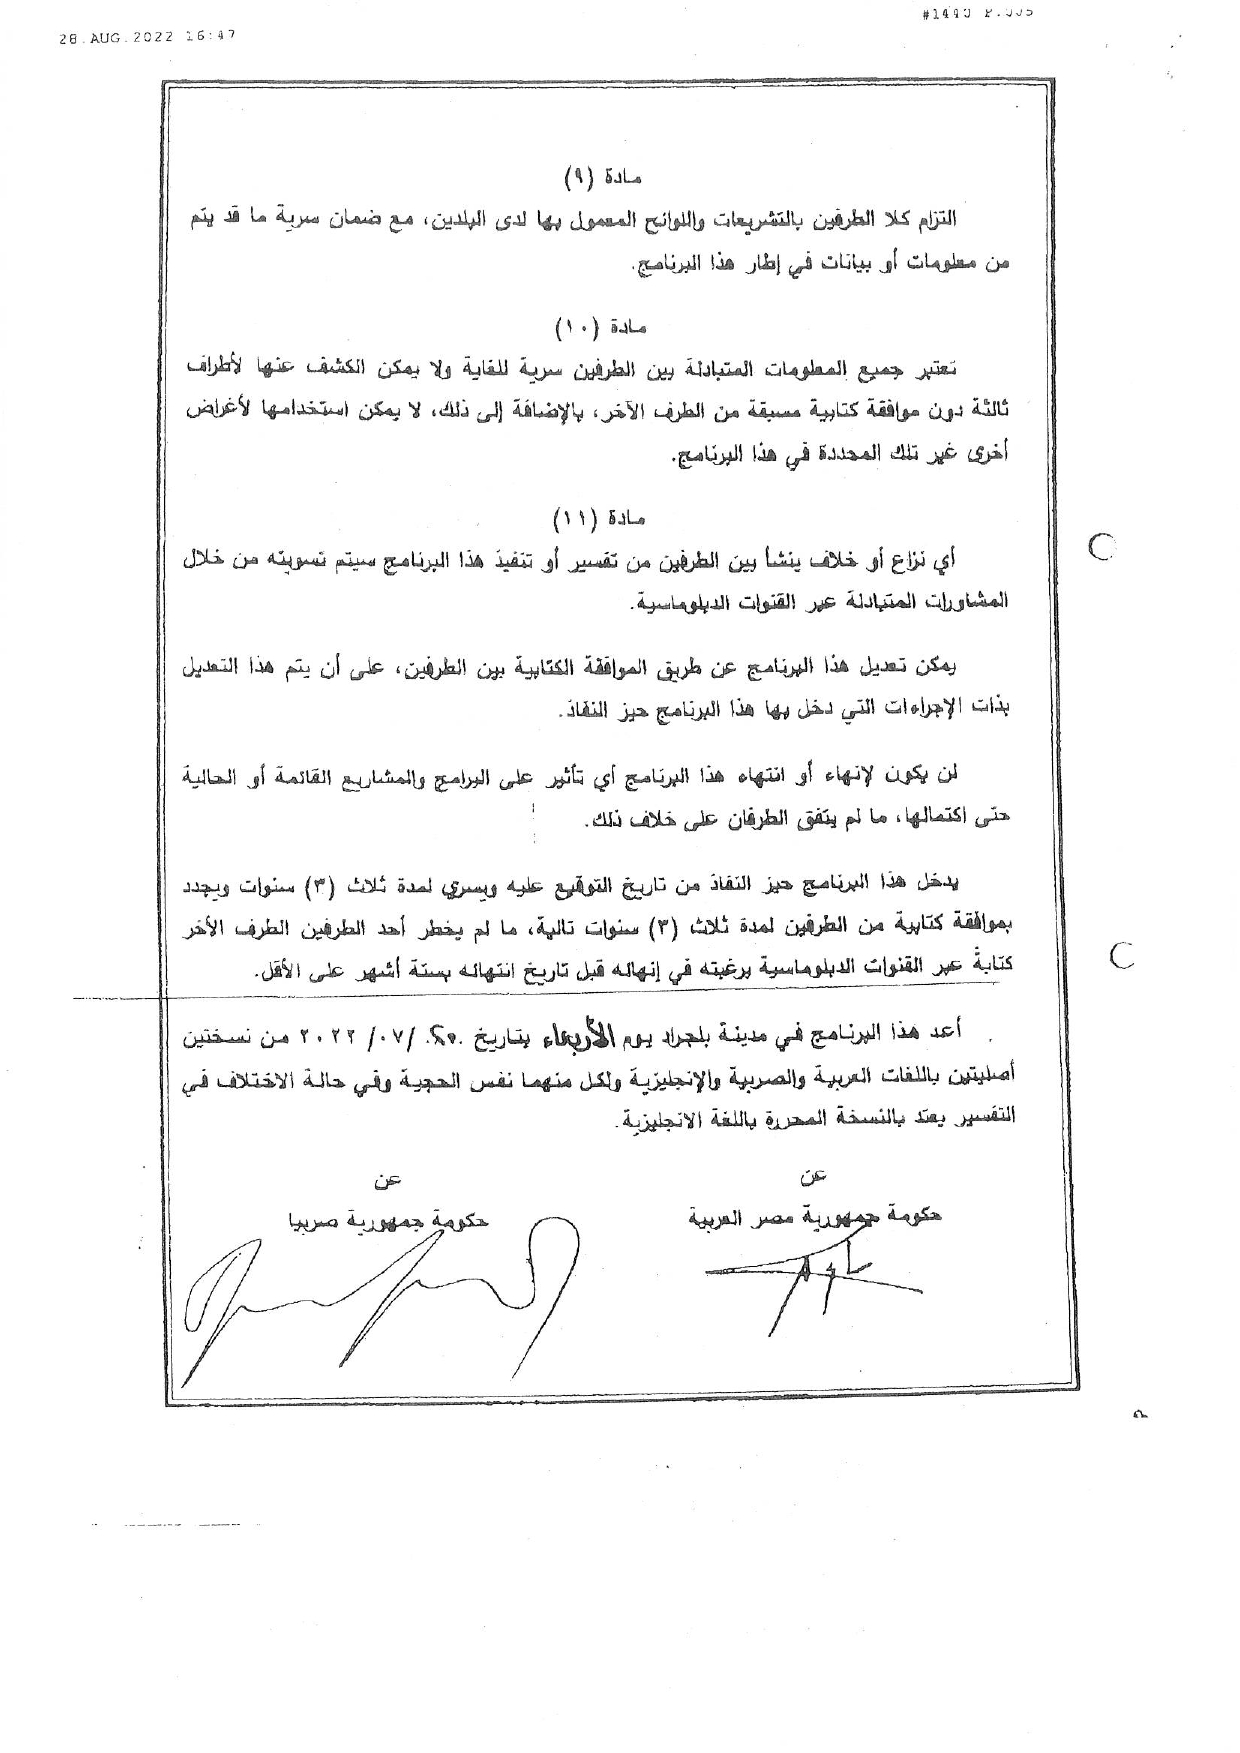 28.AUG.2022 16:47
#1440 P.005
مادة (٩)
التزام كلا الطرفين بالتشريعات واللوائح المعمول بها لدى البلدين، مع ضمان سرية ما قد يتم
من معلومات أو بيانات في إطار هذا البرنامج.
مادة (١٠)
تعتبر جميع المعلومات المتبادلة بين الطرفين سرية للغاية ولا يمكن الكشف عنها لأطراف
ثالثة دون موافقة كتابية مسبقة من الطرف الآخر، بالإضافة إلى ذلك، لا يمكن استخدامها لأغراض
أخرى غير تلك المحددة في هذا البرنامج.
مادة (١١)
أي نزاع أو خلاف ينشأ بين الطرفين من تفسير أو تنفيذ هذا البرنامج سيتم تسويته من خلال
المشاورات المتبادلة عبر القنوات الدبلوماسية.
يمكن تعديل هذا البرنامج عن طريق الموافقة الكتابية بين الطرفين، على أن يتم هذا التعديل
بذات الإجراءات التي دخل بها هذا البرنامج حيز النفاذ.
لن يكون لإنهاء أو انتهاء هذا البرنامج أي تأثير على البرامج والمشاريع القائمة أو الحالية
حتى اكتمالها، ما لم يتفق الطرفان على خلاف ذلك.
يدخل هذا البرنامج حيز النفاذ من تاريخ التوقيع عليه ويسري لمدة ثلاث (٣) سنوات ويجدد
بموافقة كتابية من الطرفين لمدة ثلاث (٣) سنوات تالية، ما لم يخطر أحد الطرفين الطرف الأخر
كتابةً عبر القنوات الدبلوماسية برغبته في إنهائه قبل تاريخ انتهائه بستة أشهر على الأقل.
أعد هذا البرنامج في مدينة بلجراد يوم الأربعاء بتاريخ /٠٧/ ٢٠٢٢ من نسختين
أصليتين باللغات العربية والصربية والإنجليزية ولكل منهما نفس الحجية وفي حالة الاختلاف في
التفسير يعتد بالنسخة المحررة باللغة الانجليزية.
عن
حكومة جمهورية مصر العربية
عن
حكومة جمهورية صربيا